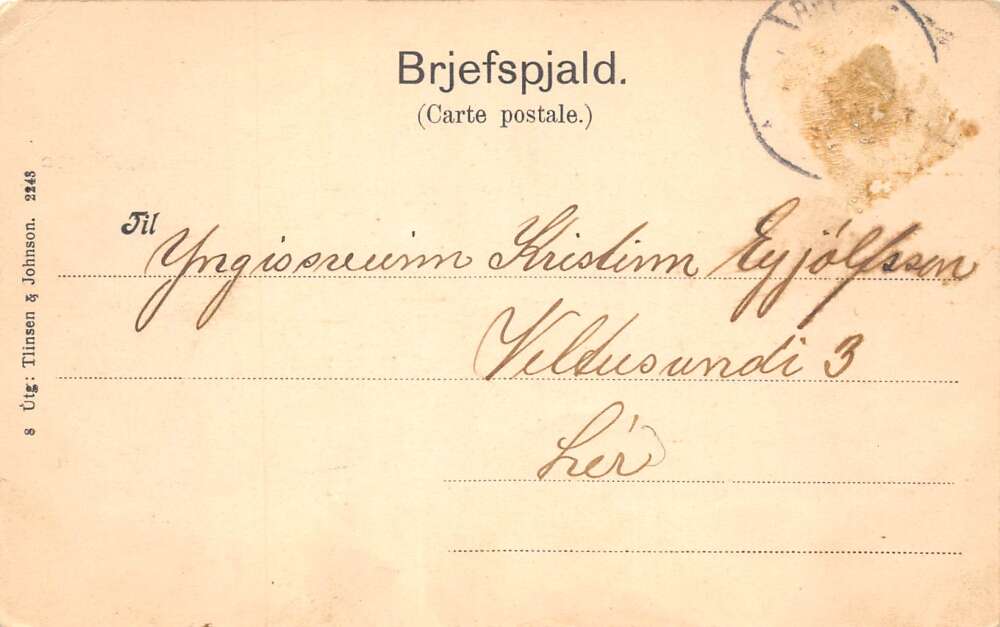 Brjefspjald.
(Carte postale.)
Til
Yngissveinn Kristinn Eyjólfsson
Veltusundi 3
hér
8 Útg: Tlinsen & Johnson. 2248